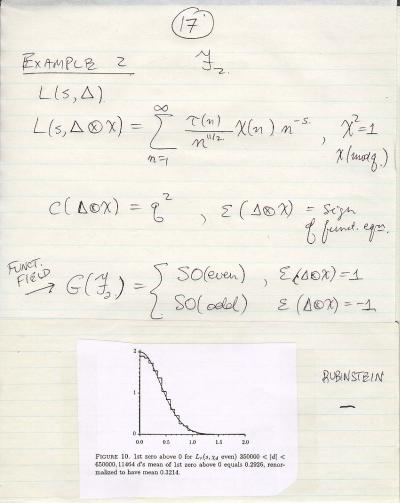 17
EXAMPLE 2 ℱ₂.
L(s, Δ).
L(s, Δ⊗χ) = ∞ Σ n=1 τ(n)/n^{11/2} χ(n) n^{-s}, χ²=1
χ(mod q.)
C(Δ⊗χ) = q², ε(Δ⊗χ) = sign
of funct. eqn.
FUNCT.
FIELD
→ G(ℱ₂) = { SO(even), ε(Δ⊗χ)=1
SO(odd) ε(Δ⊗χ) = -1
RUBINSTEIN
2
1
0
0.0 0.5 1.0 1.5 2.0
FIGURE 10. 1st zero above 0 for L_τ(s, χ_d even) 350000 < |d| <
650000, 11464 d's mean of 1st zero above 0 equals 0.2926, renor-
malized to have mean 0.3214.